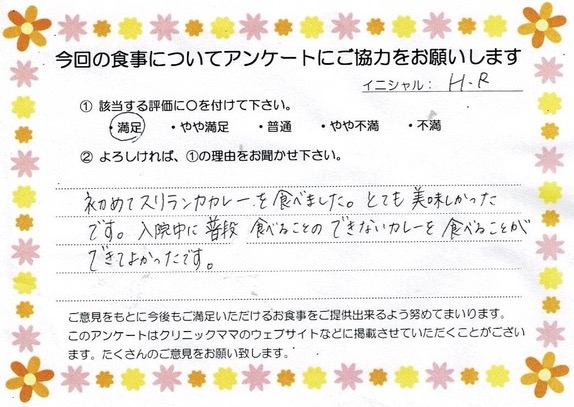 今回の食事についてアンケートにご協力をお願いします
イニシャル： H.R
① 該当する評価に〇を付けて下さい。
・満足 ・やや満足 ・普通 ・やや不満 ・不満
② よろしければ、①の理由をお聞かせ下さい。
初めてスリランカカレーを食べました。とても美味しかった
です。入院中に普段 食べることのできないカレーを食べることが
できてよかったです。
ご意見をもとに今後もご満足いただけるお食事をご提供出来るよう努めてまいります。
このアンケートはクリニックママのウェブサイトなどに掲載させていただくことがござい
ます。たくさんのご意見をお願い致します。